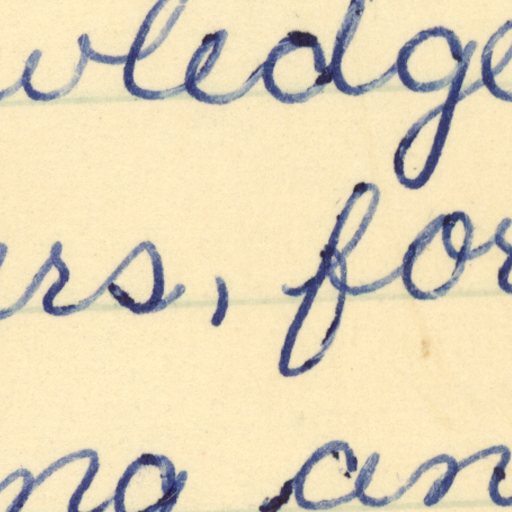 wledge
rs, for
ng an